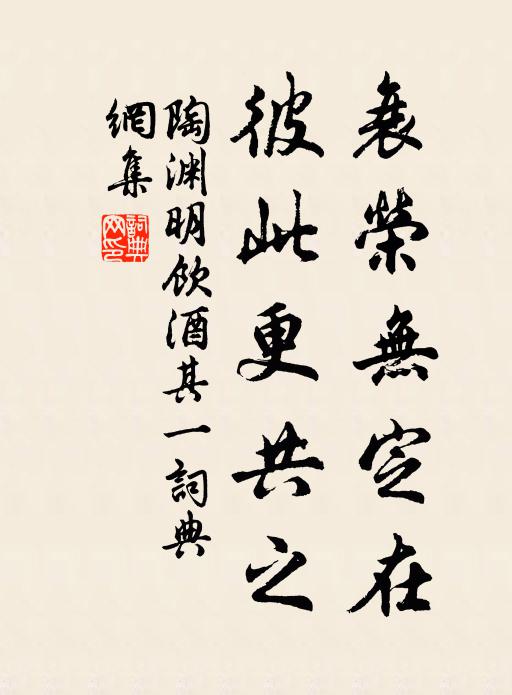 衰榮無定在
彼此更共之
陶渊明飲酒其一詞典
網集
詞典网印